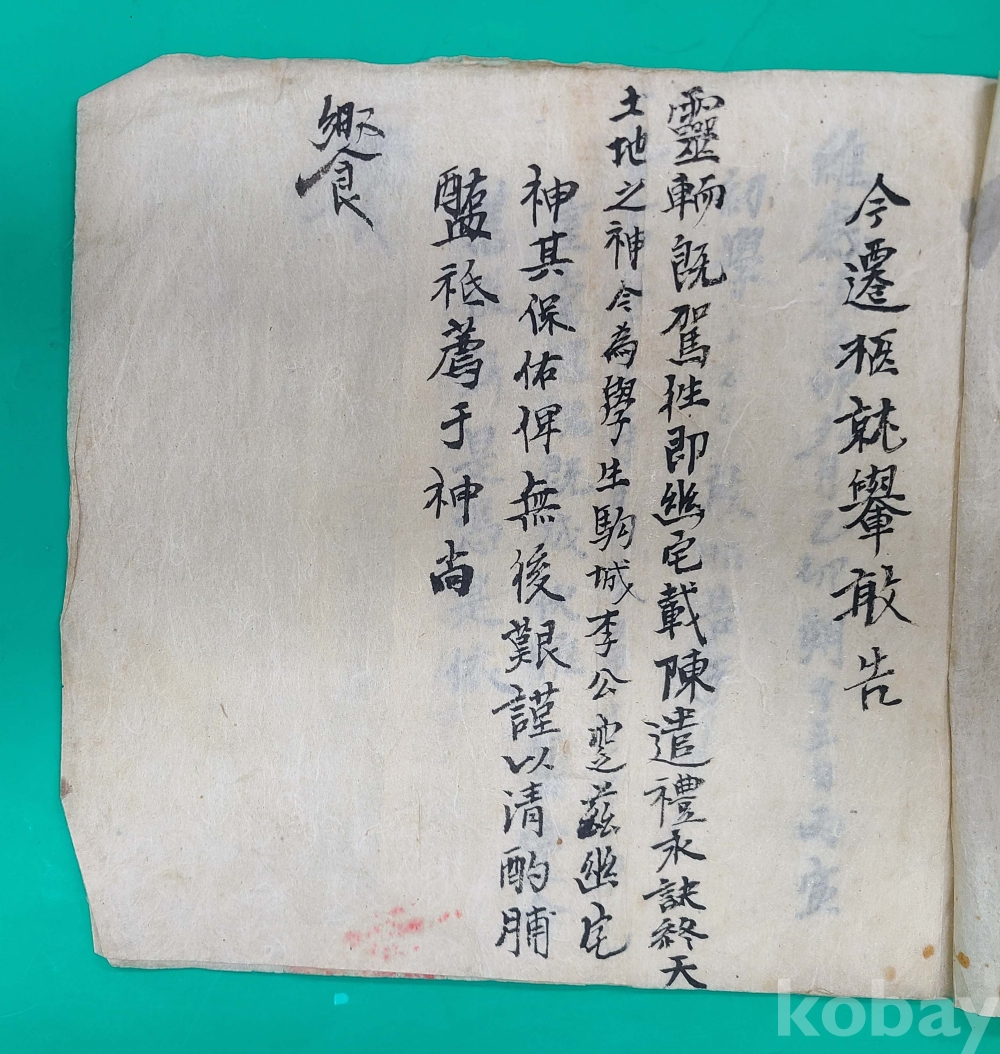 今遷柩就轝敢告
靈輀既駕往即幽宅載陳遣禮永訣終天
土地之神今為學生駒城李公窆茲幽宅
神其保佑俾無後艱謹以清酌脯
醢祗薦于神尚
饗
kobay